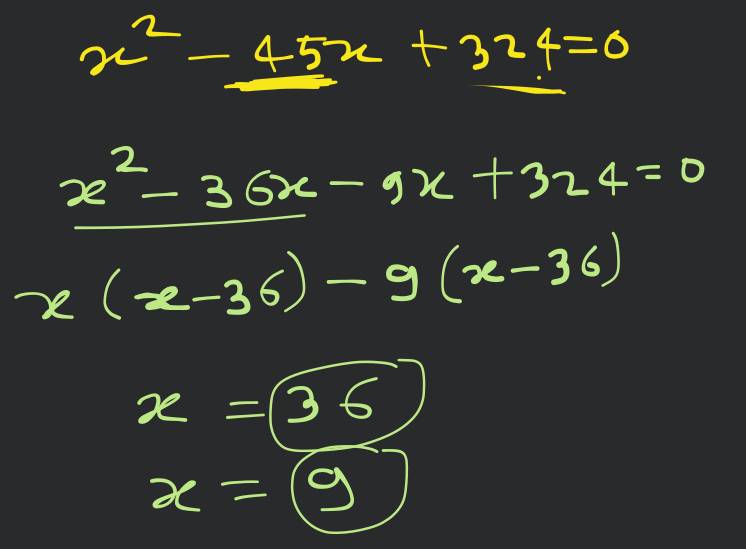 x² - 45x + 324 = 0
x² - 36x - 9x + 324 = 0
x (x - 36) - 9 (x - 36)
x = 36
x = 9